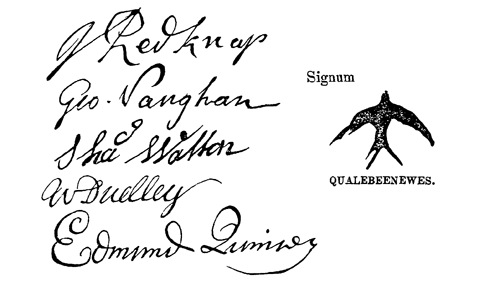 J Redknap
Geo. Vaughan
Shad Walton
W Dudley
Edmund Quincey
Signum
QUALEBEENEWES.